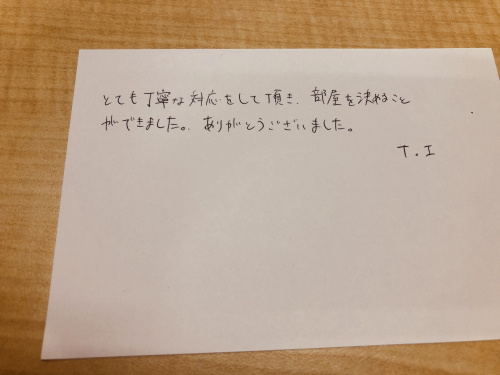 とても丁寧な対応をして頂き、部屋を決めること
ができました。ありがとうございました。
T.I